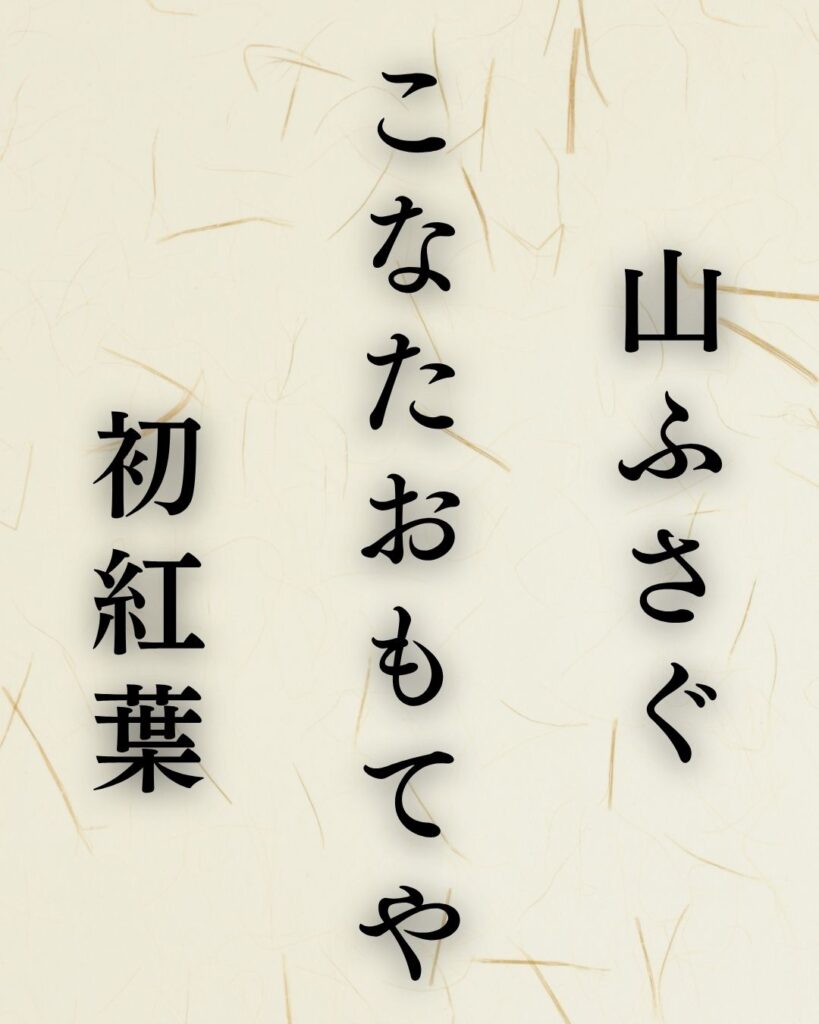 山ふさぐ
こなたおもてや
初紅葉